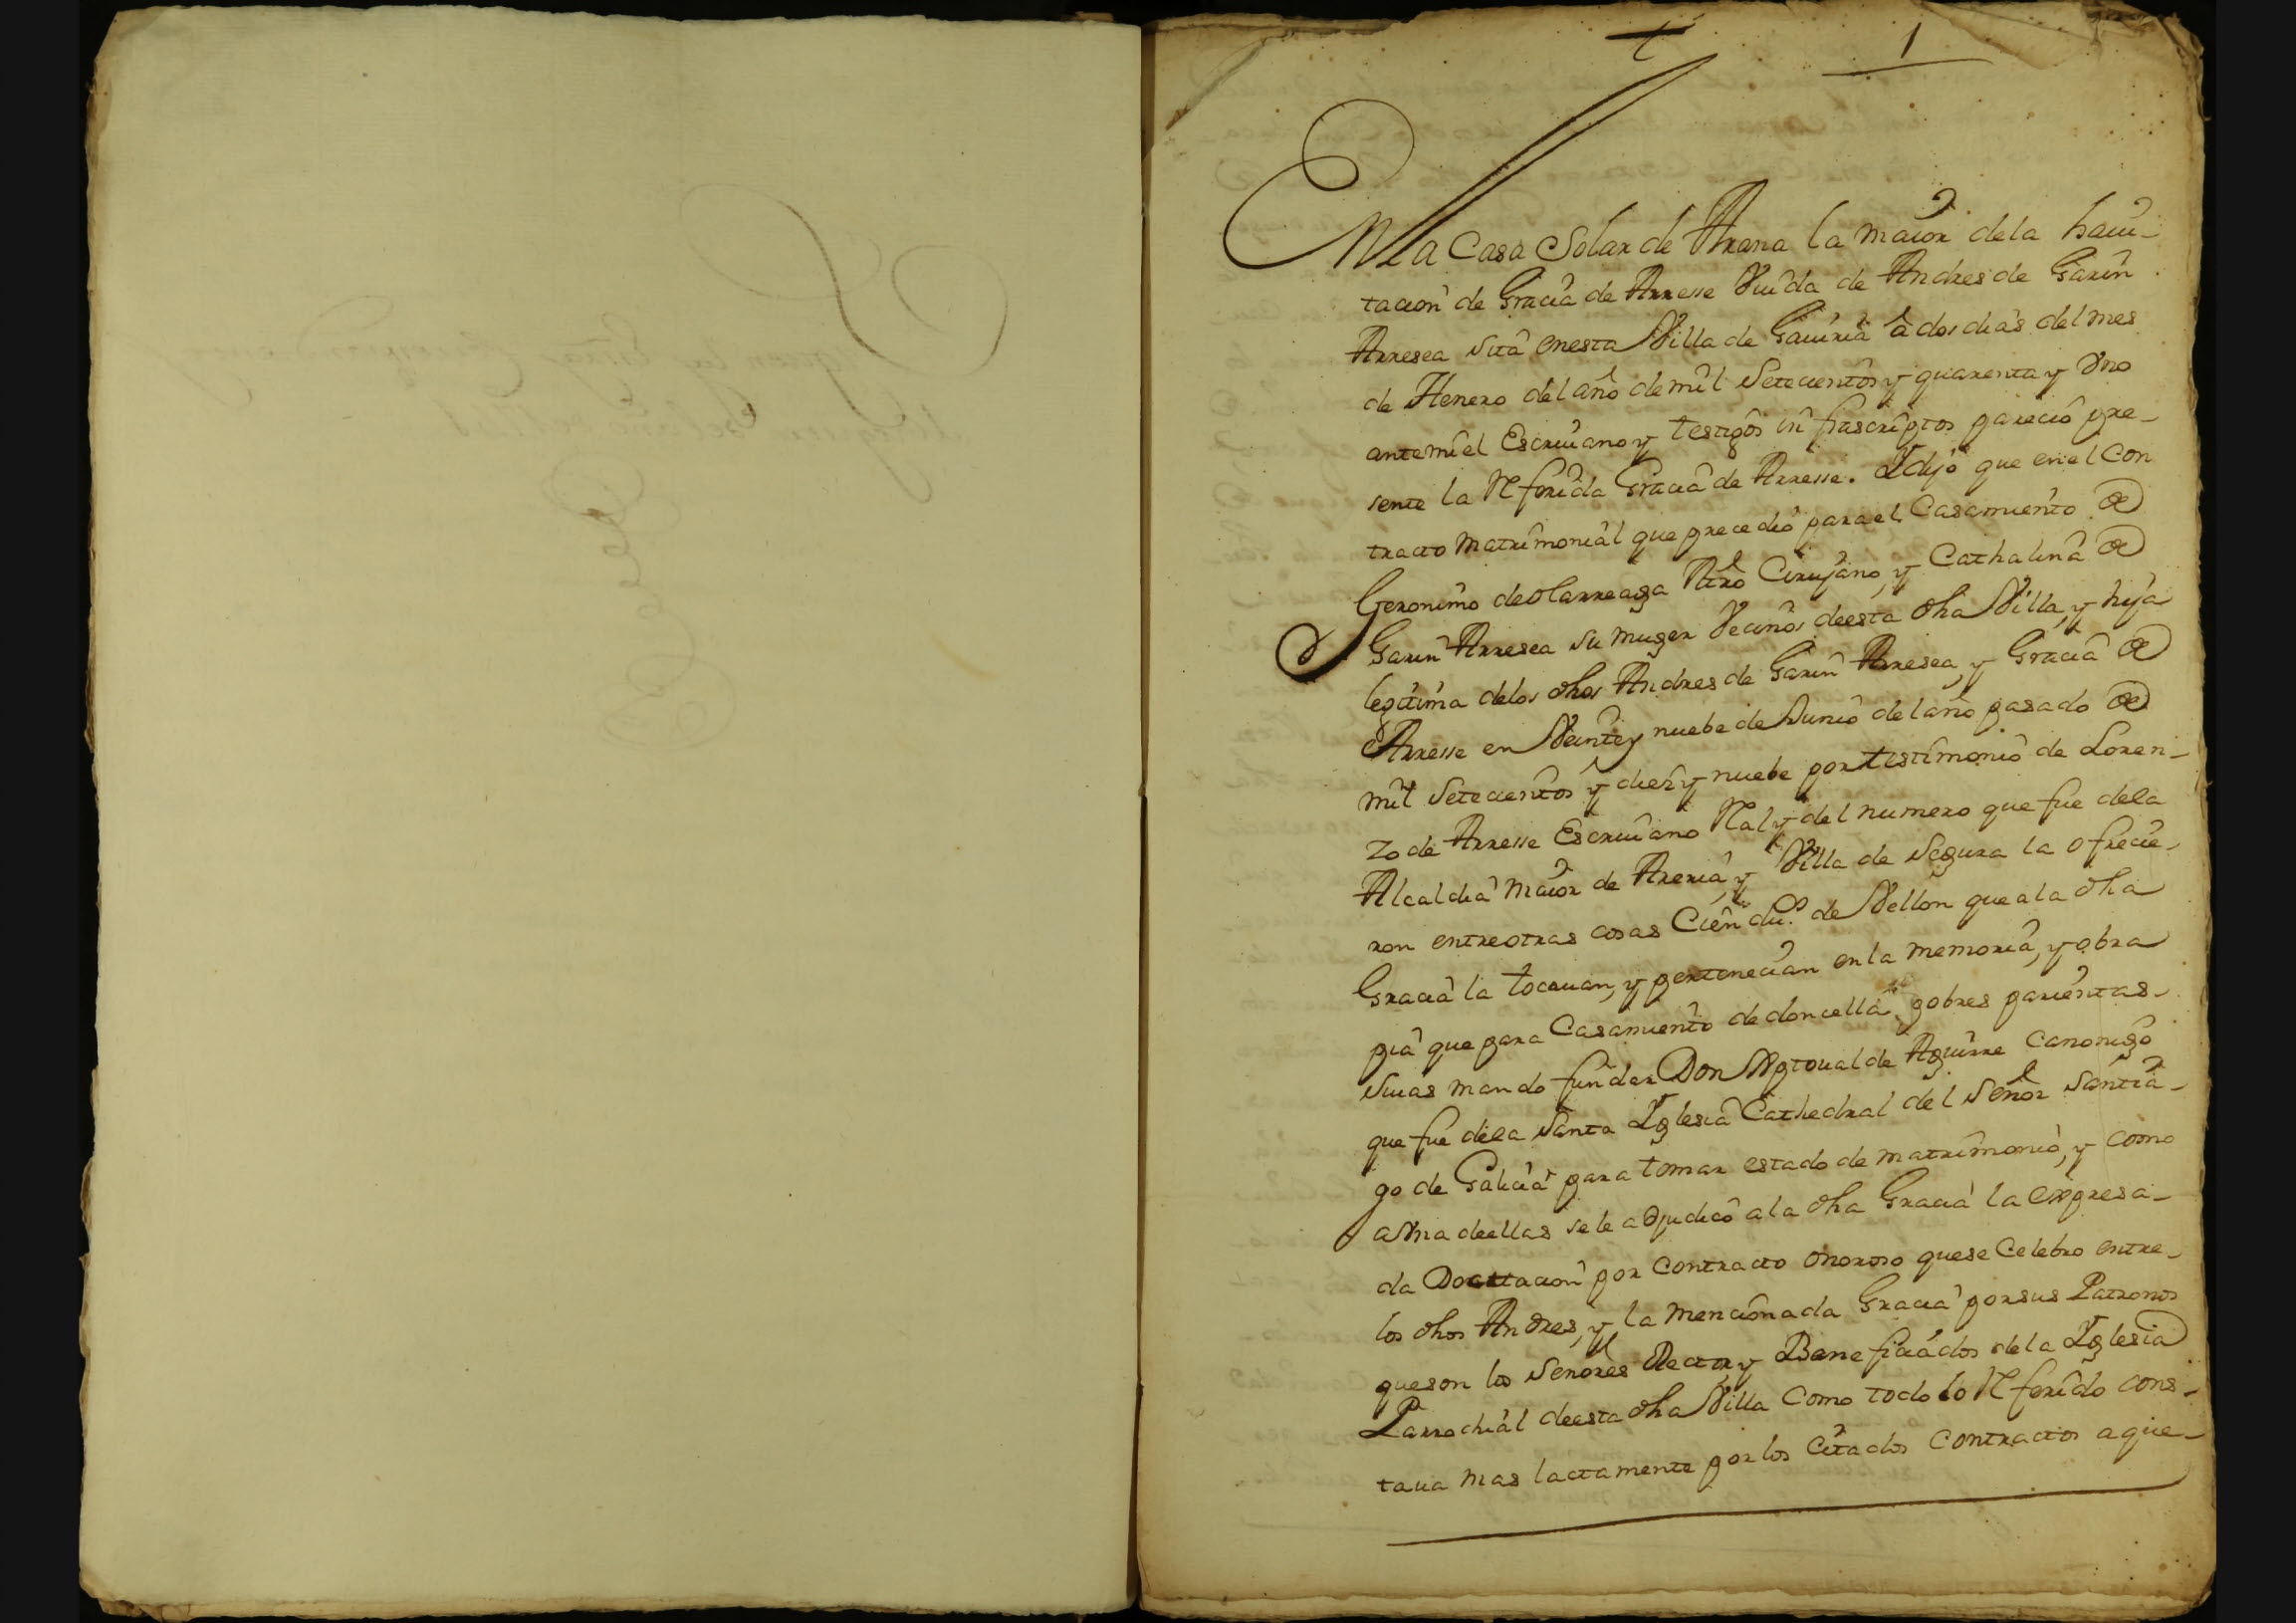 1
En la Casa Solar de Arana la maior de la havi-
tacion de Gracia de Arresse Viuda de Andres de Garin
Arresea sita en esta Villa de Gaviria â dos dias del mes
de Henero del año de mil Setecientos y quarenta y Vno
ante mi el Escrivano y testigos infrascriptos parecio pre-
sente la Referida Gracia de Arresse. Y dijo que en el Con
tracto Matrimonial que precedio para el Casamiento de
Geronimo de Olarreaga Mro Cirujano, y Cathalina de
Garin Arresea su muger Vecinos de esta dha Villa, y hija
legitima de los dhos Andres de Garin Arresea, y Gracia de
Arresse en Veinte y nuebe de Junio del año pasado de
mil Setecientos y diez y nuebe por testimonio de Loren-
zo de Arresse Escrivano Ral y del numero que fue de la
Alcaldia Maior de Areria, y Villa de Segura la ofrecie-
ron entre otras cosas Cien du.os de Vellon que a la dha
Gracia la tocavan, y pertenecian en la memoria, y obra
pia que para Casamiento de doncellas pobres parientas
suias mando fundar Don Xptoval de Aguirre Canonigo
que fue de la Santa Yglesia Cathedral del Señor Santia-
go de Galicia para tomar estado de matrimonio, y como
a Vna de ellas se le adjudicô a la dha Gracia la expresa-
da Dotacion por contracto onoroso que se Celebro entre
los dhos Andres, y la mencionada Gracia por sus Patronos
que son los Señores Rector y Beneficiados de la Yglesia
Parrochial de esta dha Villa como todo lo Referido cons-
tava mas lactamente por los Citados Contractos a que